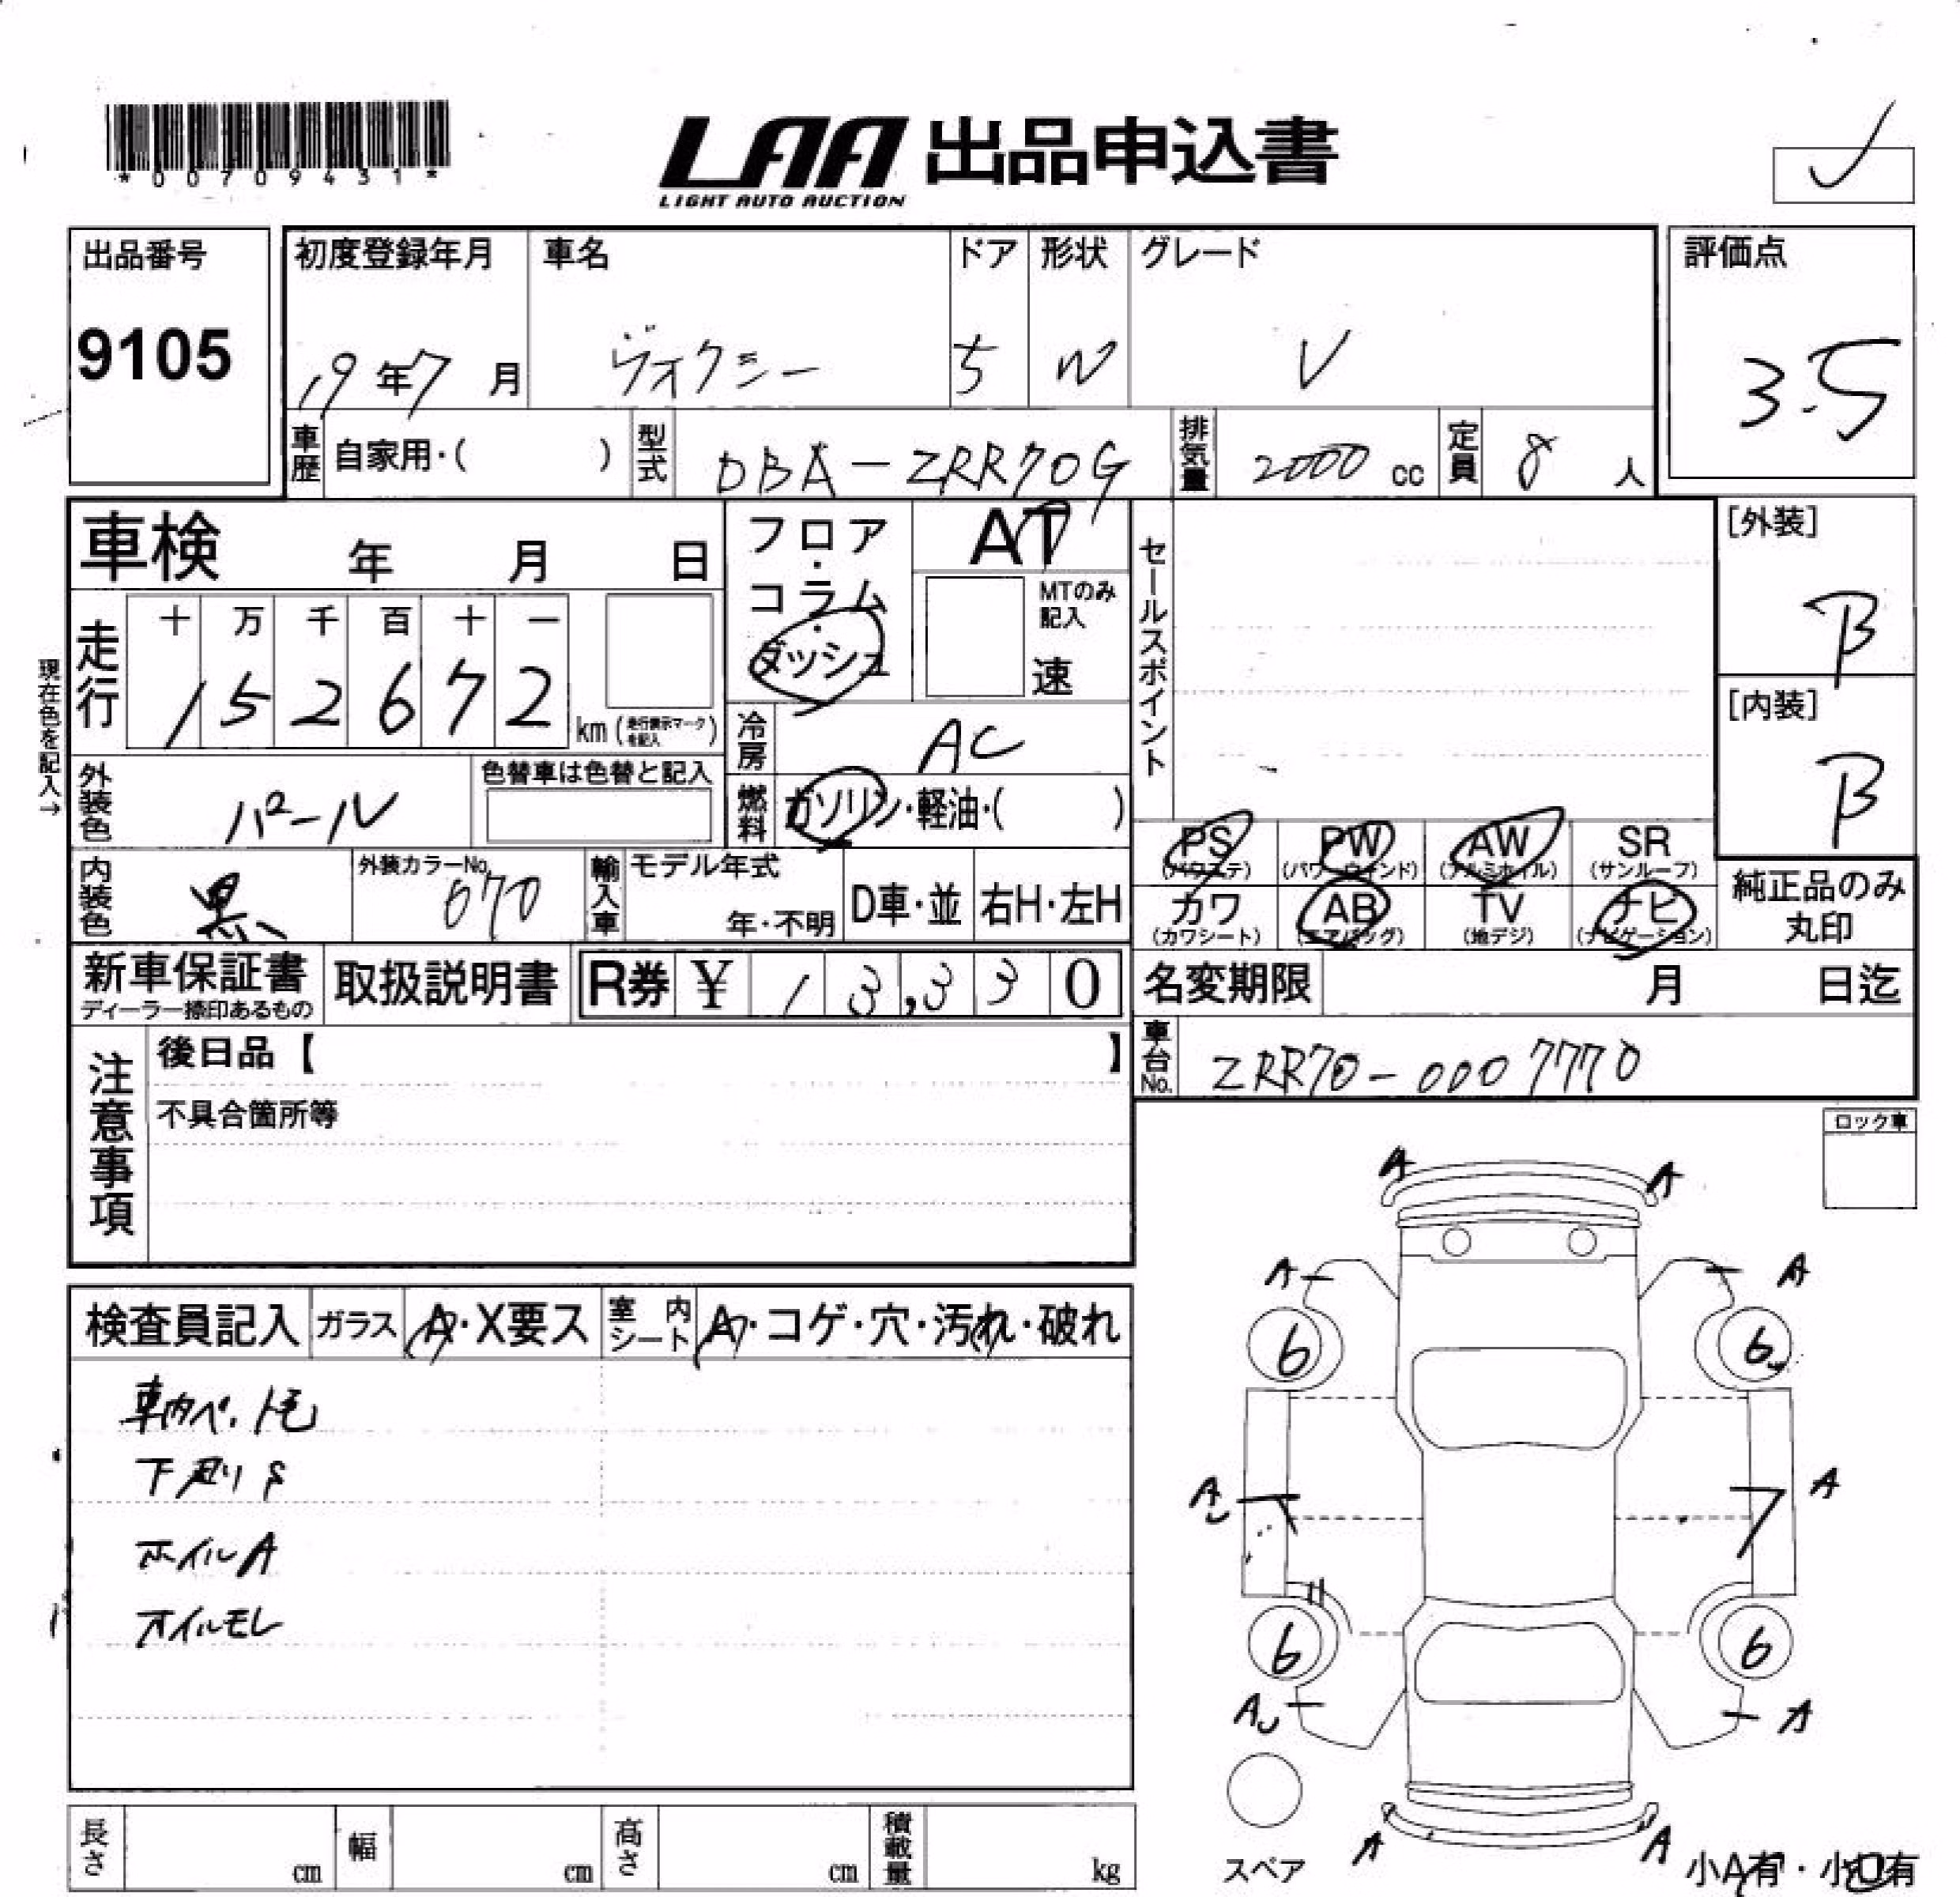 *00709431*
LAA 出品申込書
LIGHT AUTO AUCTION
出品番号
9105
初度登録年月
19年7月
車名
ヴォクシー
ドア
5
形状
W
グレード
V
評価点
3.5
車歴 自家用・( )
型式 DBA-ZRR70G
排気量 2000 cc
定員 8 人
車検 年 月 日
フロア・コラム・ダッシュ
AT
MTのみ記入
速
セールスポイント
[外装]
B
[内装]
B
現在色を記入→
走行 十 万 千 百 十 一
152672 km (走行表示マークを記入)
冷房 AC
外装色 パール
色替車は色替と記入
燃料 ガソリン・軽油・( )
PS (パワステ)
PW (パワーウインド)
AW (アルミホイル)
SR (サンルーフ)
カワ (カワシート)
AB (エアバッグ)
TV (地デジ)
ナビ (ナビゲーション)
純正品のみ丸印
内装色 黒
外装カラーNo. 070
輸入車 モデル年式
年・不明
D車・並
右H・左H
新車保証書
ディーラー捺印あるもの
取扱説明書
R券 ¥ 13,330
名変期限 月 日迄
車台No. ZRR70-0007770
注意事項
後日品【 】
不具合箇所等
ロック車
検査員記入
ガラス A・X要ス
室内シート A・コゲ・穴・汚れ・破れ
下廻りS
ホイルA
オイルモレ
A A
A A
6 6
A A
6 6
A A
A A
スペア
小A有・小U有
長さ cm
幅 cm
高さ cm
積載量 kg